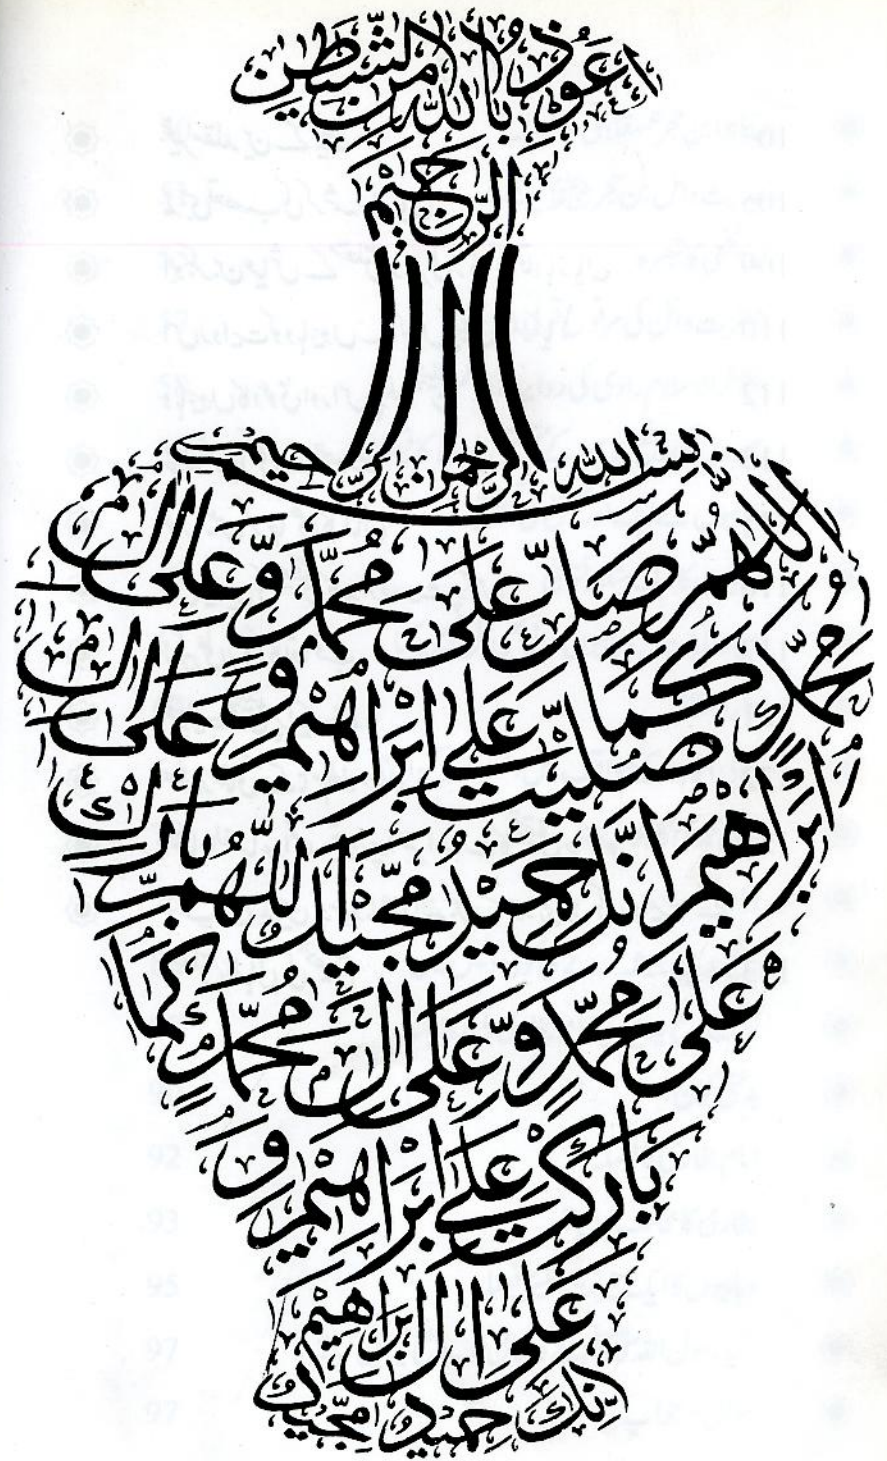 اعوذ بالله من الشيطن
الرجيم
بسم الله الرحمن الرحيم
اللهم صل على محمد وعلى ال
محمد كما صليت على ابرهيم وعلى ال
ابرهيم انك حميد مجيد اللهم بارك
على محمد وعلى ال محمد كما
باركت على ابرهيم و
على ال ابرهيم
انك حميد مجيد
92
93
95
97
97